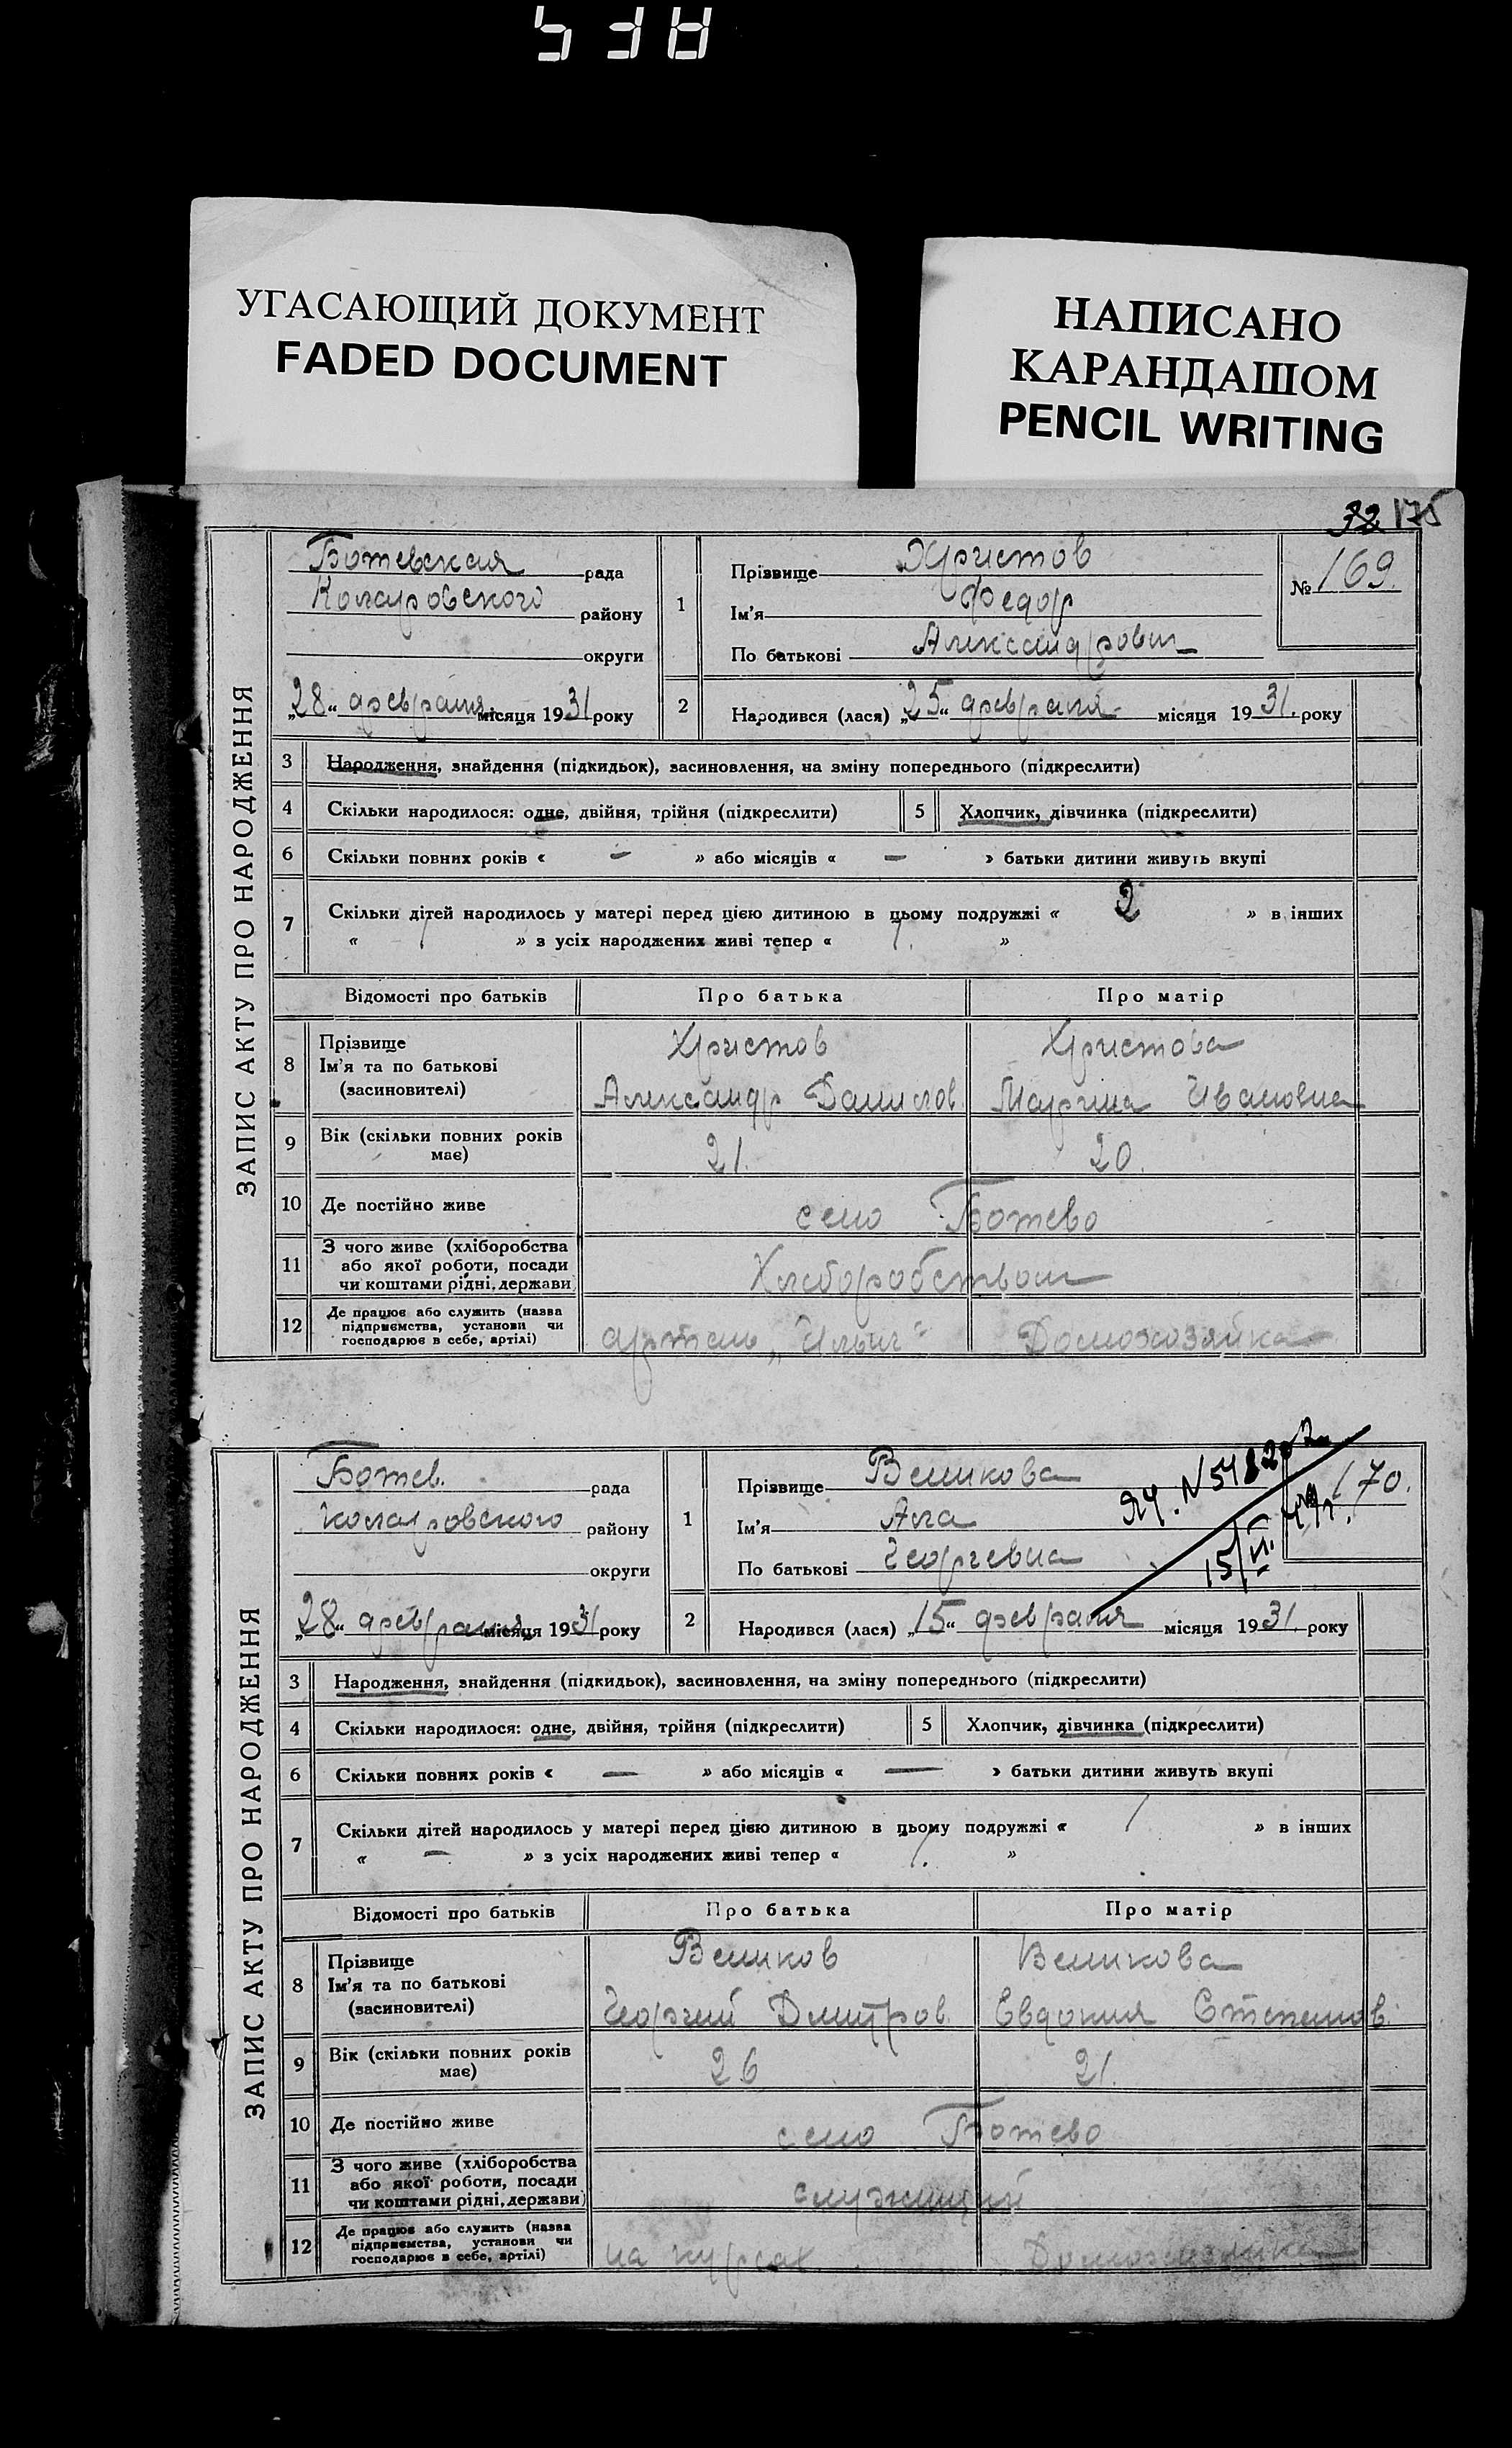 УГАСАЮЩИЙ ДОКУМЕНТ
FADED DOCUMENT
НАПИСАНО
КАРАНДАШОМ
PENCIL WRITING
32 175
ЗАПИС АКТУ ПРО НАРОДЖЕННЯ
Ботевская рада
Коларовского району
округи
„28“ февраля місяця 1931 року
1
Прізвище Христов
Ім'я Федор
По батькові Александрович
№ 169.
2 Народився (лася) „25“ февраля місяця 1931. року
3 Народження, знайдення (підкидьок), засиновлення, на зміну попереднього (підкреслити)
4 Скільки народилося: одне, двійня, трійня (підкреслити) 5 Хлопчик, дівчинка (підкреслити)
6 Скільки повних років « — » або місяців « — » батьки дитини живуть вкупі
7 Скільки дітей народилось у матері перед цією дитиною в цьому подружжі « 2 » в інших
« 1 » з усіх народжених живі тепер « 1. »
Відомості про батьків Про батька Про матір
8 Прізвище
Ім'я та по батькові
(засиновителі)
Христов Христова
Александр Данилов. Марина Ивановна
9 Вік (скільки повних років
має)
21. 20.
10 Де постійно живе село Ботево
11 З чого живе (хліборобства
або якої роботи, посади
чи коштами рідні, держави)
Хлеборобством
12 Де працює або служить (назва
підприємства, установи чи
господарює в себе, артілі)
артель „Ильич“ Домохозяйка
ЗАПИС АКТУ ПРО НАРОДЖЕННЯ
Ботев. рада
Коларовского району
округи
„28“ февраля місяця 1931 року
1
Прізвище Великова
Ім'я Ала
По батькові Георгевна
170.
2 Народився (лася) „15“ февраля місяця 1931. року
3 Народження, знайдення (підкидьок), засиновлення, на зміну попереднього (підкреслити)
4 Скільки народилося: одне, двійня, трійня (підкреслити) 5 Хлопчик, дівчинка (підкреслити)
6 Скільки повних років « — » або місяців « — » батьки дитини живуть вкупі
7 Скільки дітей народилось у матері перед цією дитиною в цьому подружжі « 1 » в інших
« — » з усіх народжених живі тепер « 1. »
Відомості про батьків Про батька Про матір
8 Прізвище
Ім'я та по батькові
(засиновителі)
Великов Великова
Георгий Дмитров. Евдокия Степанов.
9 Вік (скільки повних років
має)
26 21.
10 Де постійно живе село Ботево
11 З чого живе (хліборобства
або якої роботи, посади
чи коштами рідні, держави)
служащий
12 Де працює або служить (назва
підприємства, установи чи
господарює в себе, артілі)
на курсах. Домохозяйка